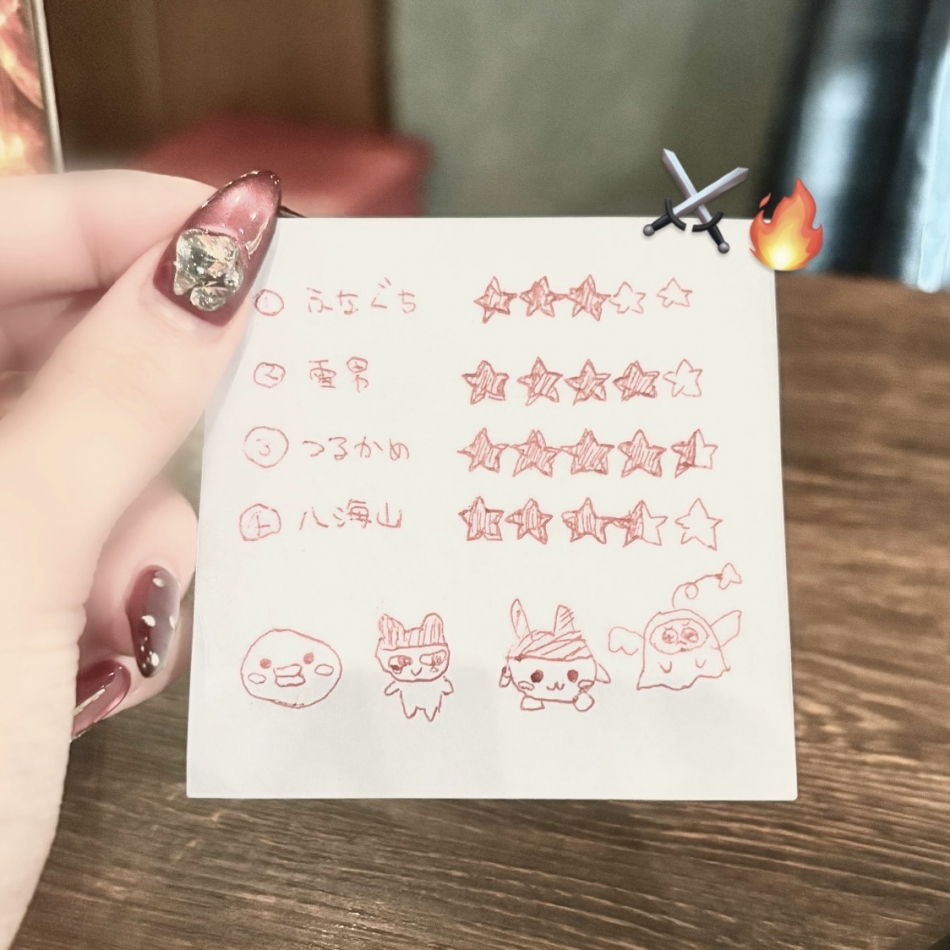 ① ふなぐち ★★★☆☆
② 雪男 ★★★★☆
③ つるかめ ★★★★⯪
④ 八海山 ★★★⯪☆